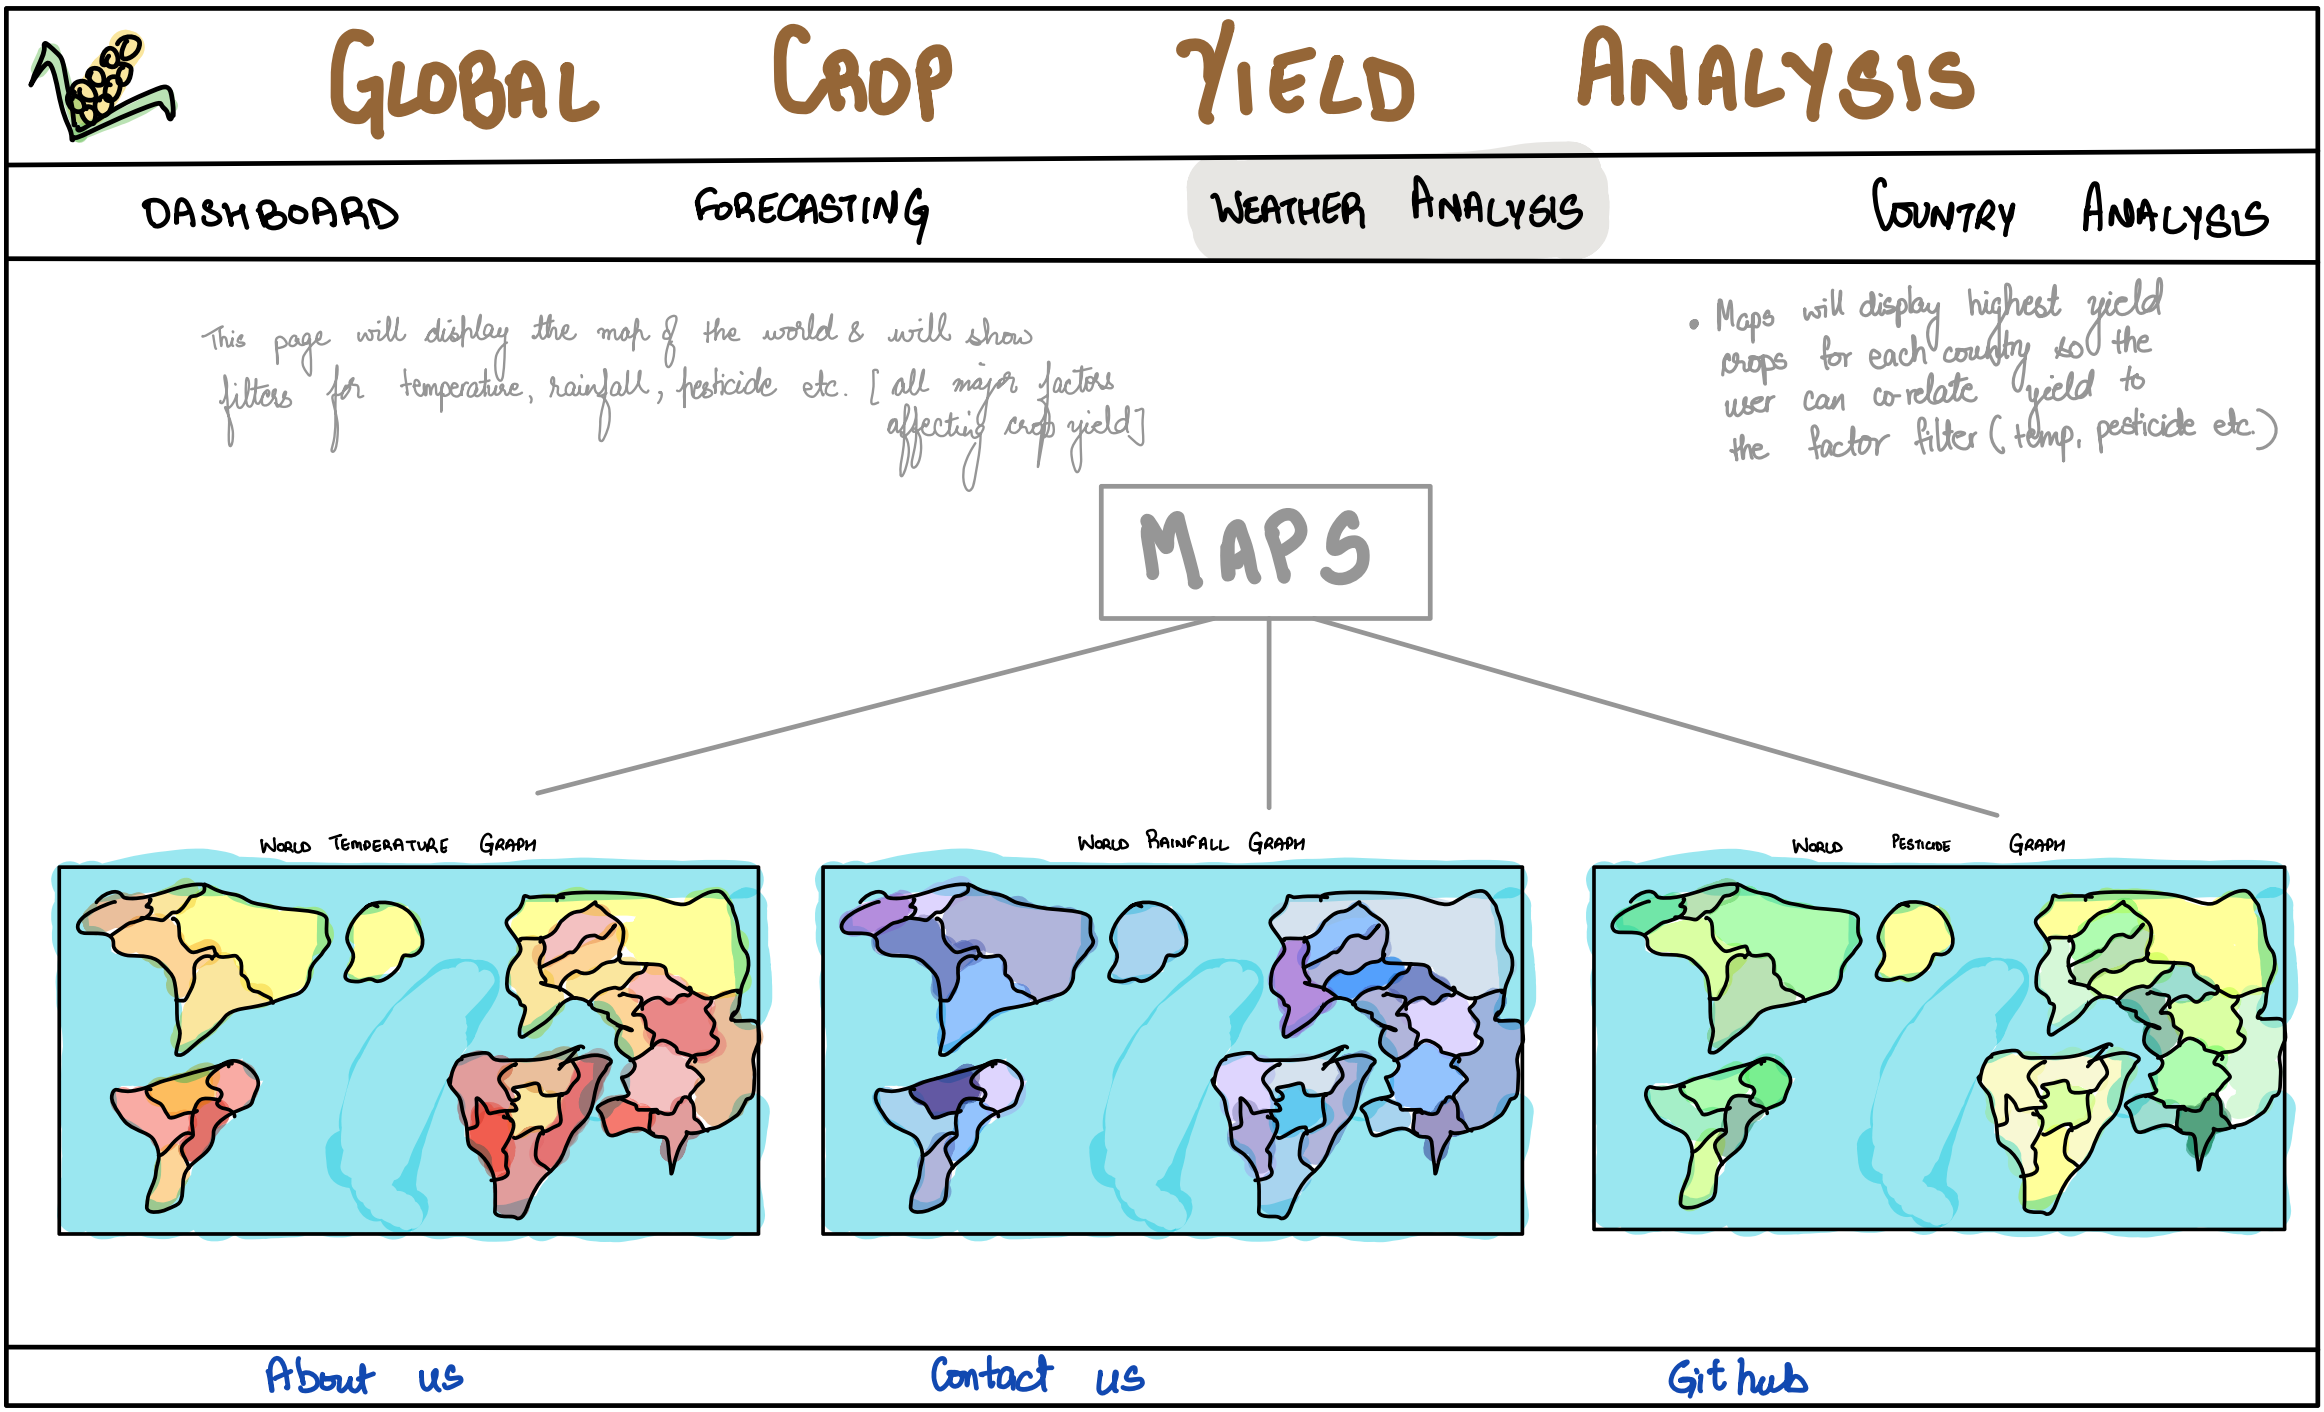 GLOBAL CROP YIELD ANALYSIS
DASHBOARD FORECASTING WEATHER ANALYSIS COUNTRY ANALYSIS
This page will display the map of the world & will show
filters for temperature, rainfall, pesticide etc. [all major factors
affecting crop yield]
• Maps will display highest yield
crops for each country so the
user can co-relate yield to
the factor filter (temp, pesticide etc.)
MAPS
WORLD TEMPERATURE GRAPH
WORLD RAINFALL GRAPH
WORLD PESTICIDE GRAPH
About us Contact us Github